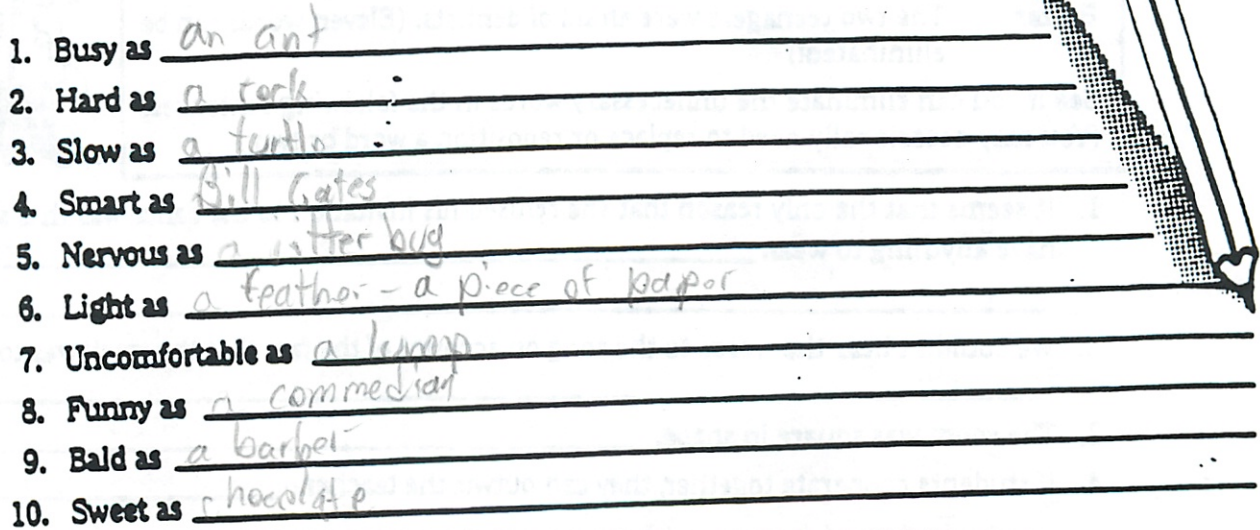 1. Busy as an ant
2. Hard as a rock
3. Slow as a turtle
4. Smart as Bill Gates
5. Nervous as a jitter bug
6. Light as a feather - a piece of paper
7. Uncomfortable as a lump
8. Funny as a commedian
9. Bald as a barber
10. Sweet as chocolate